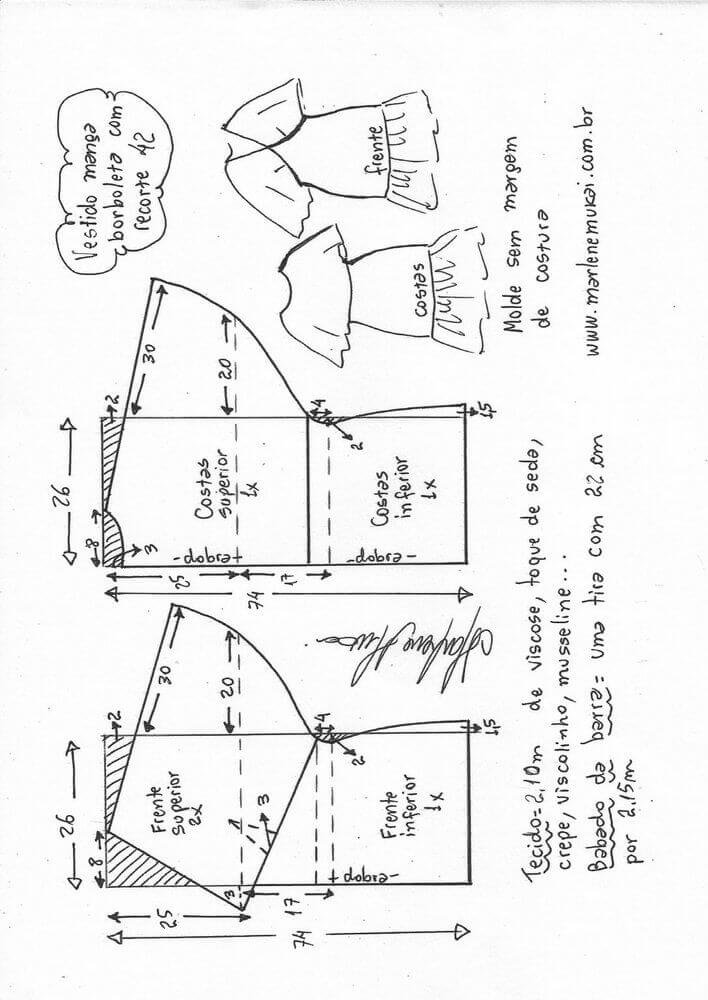 Vestido manga
borboleta com
recorte 42
frente
costas
Molde sem margem
de costura
www.marlenemukai.com.br
26
8
2
30
3
Costas
superior
1x
20
25
dobra
17
74
4
2
Costas
inferior
1x
dobra
1,5
26
8
2
30
Frente
superior
2x
20
25
3
3
17
74
4
2
Frente
inferior
1x
dobra
1,5
Tecido=2,10m de viscose, toque de seda,
crepe, viscolinho, musseline...
Babado da barra= uma tira com 22cm
por 2,15m